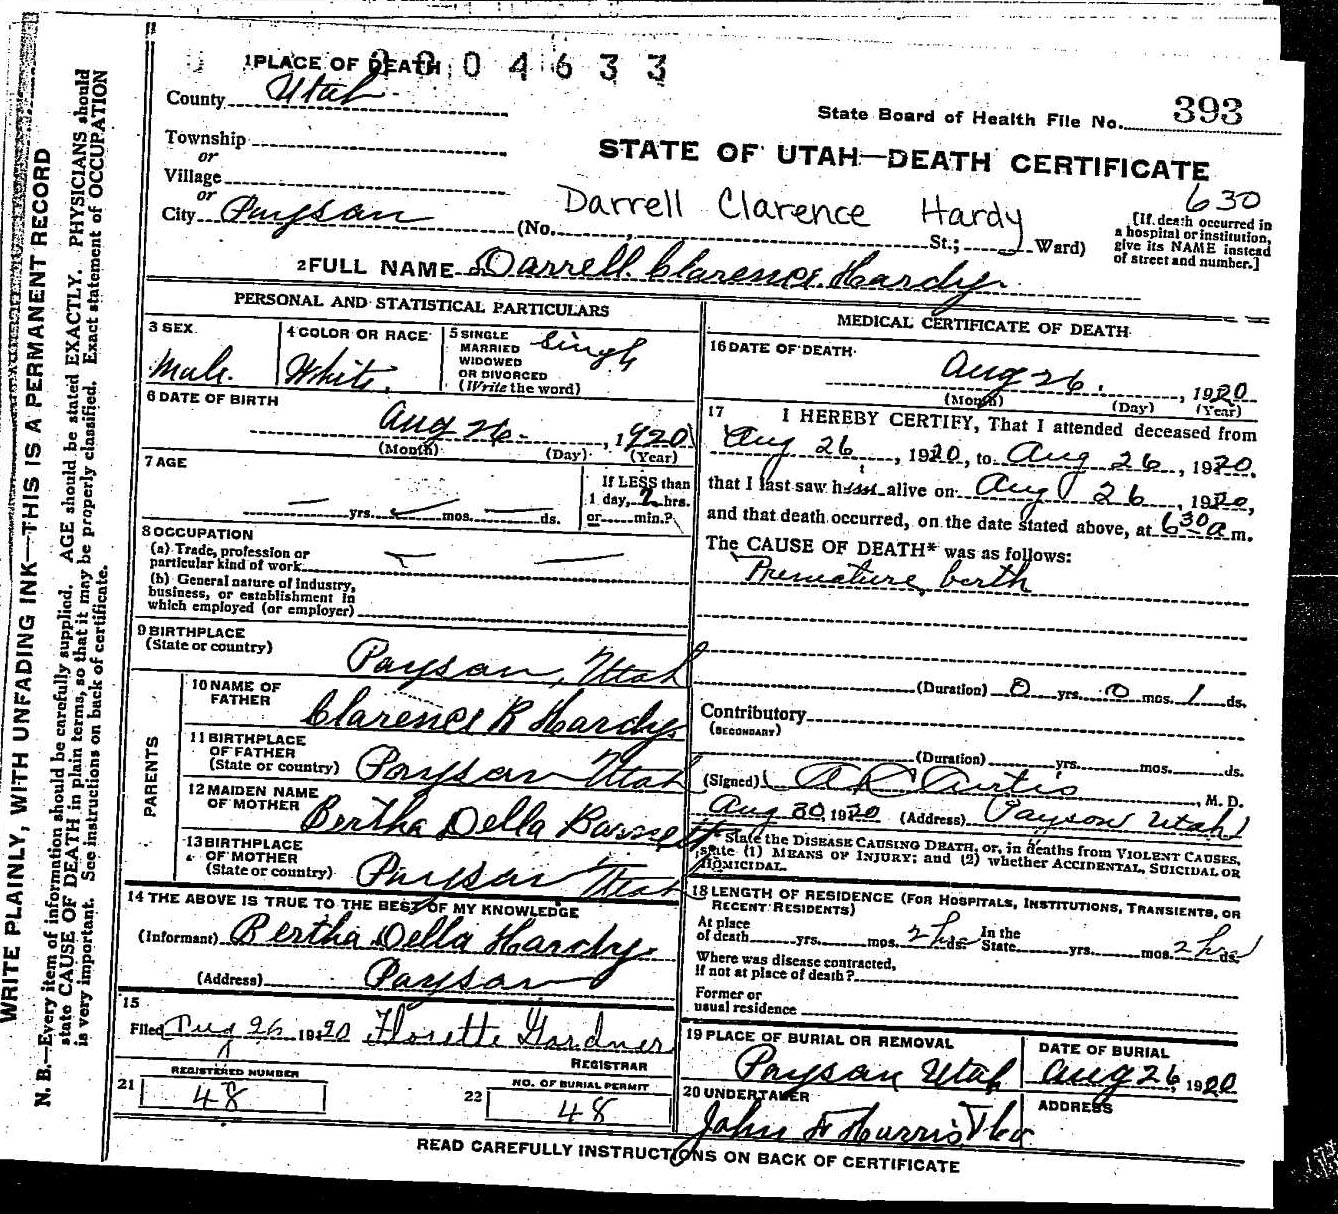 WRITE PLAINLY, WITH UNFADING INK—THIS IS A PERMANENT RECORD
N. B.—Every item of information should be carefully supplied. AGE should be stated EXACTLY. PHYSICIANS should
state CAUSE OF DEATH in plain terms, so that it may be properly classified. Exact statement of OCCUPATION
is very important. See instructions on back of certificate.
1 PLACE OF DEATH
04633
County Utah
State Board of Health File No. 393
Township
or
Village
or
City Payson
STATE OF UTAH—DEATH CERTIFICATE
630
Darrell Clarence Hardy
(No. St.; Ward)
[If death occurred in
a hospital or institution,
give its NAME instead
of street and number.]
2 FULL NAME Darrell Clarence Hardy
PERSONAL AND STATISTICAL PARTICULARS
3 SEX
Male
4 COLOR OR RACE
White
5 SINGLE
MARRIED
WIDOWED
OR DIVORCED
(Write the word)
Single
6 DATE OF BIRTH
Aug 26 , 1920
(Month) (Day) (Year)
7 AGE
— yrs. — mos. — ds.
If LESS than
1 day, 2 hrs.
or min.?
8 OCCUPATION
(a) Trade, profession or
particular kind of work — —
(b) General nature of industry,
business, or establishment in
which employed (or employer)
9 BIRTHPLACE
(State or country)
Payson, Utah
PARENTS
10 NAME OF
FATHER
Clarence R Hardy
11 BIRTHPLACE
OF FATHER
(State or country) Payson Utah
12 MAIDEN NAME
OF MOTHER Bertha Della Bassett
13 BIRTHPLACE
OF MOTHER
(State or country) Payson Utah
14 THE ABOVE IS TRUE TO THE BEST OF MY KNOWLEDGE
(Informant) Bertha Della Hardy
(Address) Payson
15
Filed Aug 26 1920 Florette Gardner
REGISTRAR
21 REGISTERED NUMBER
48
22 NO. OF BURIAL PERMIT
48
MEDICAL CERTIFICATE OF DEATH
16 DATE OF DEATH
Aug 26 , 1920
(Month) (Day) (Year)
17 I HEREBY CERTIFY, That I attended deceased from
Aug 26 , 1920, to Aug 26 , 1920.
that I last saw him alive on Aug 26 , 1920,
and that death occurred, on the date stated above, at 6 30 a m.
The CAUSE OF DEATH* was as follows:
Premature birth
(Duration) 0 yrs. 0 mos. 1 ds.
Contributory
(SECONDARY)
(Duration) yrs. mos. ds.
(Signed) A R Curtis , M. D.
Aug 30 1920 (Address) Payson Utah
State the DISEASE CAUSING DEATH, or, in deaths from VIOLENT CAUSES,
state (1) MEANS OF INJURY; and (2) whether ACCIDENTAL, SUICIDAL OR
HOMICIDAL.
18 LENGTH OF RESIDENCE (FOR HOSPITALS, INSTITUTIONS, TRANSIENTS, OR
RECENT RESIDENTS)
At place
of death yrs. mos. 2 hrs ds. In the
State yrs. mos. 2 hrs ds.
Where was disease contracted,
if not at place of death?
Former or
usual residence
19 PLACE OF BURIAL OR REMOVAL
Payson Utah
DATE OF BURIAL
Aug 26 1920
20 UNDERTAKER
John F Harris
ADDRESS
READ CAREFULLY INSTRUCTIONS ON BACK OF CERTIFICATE